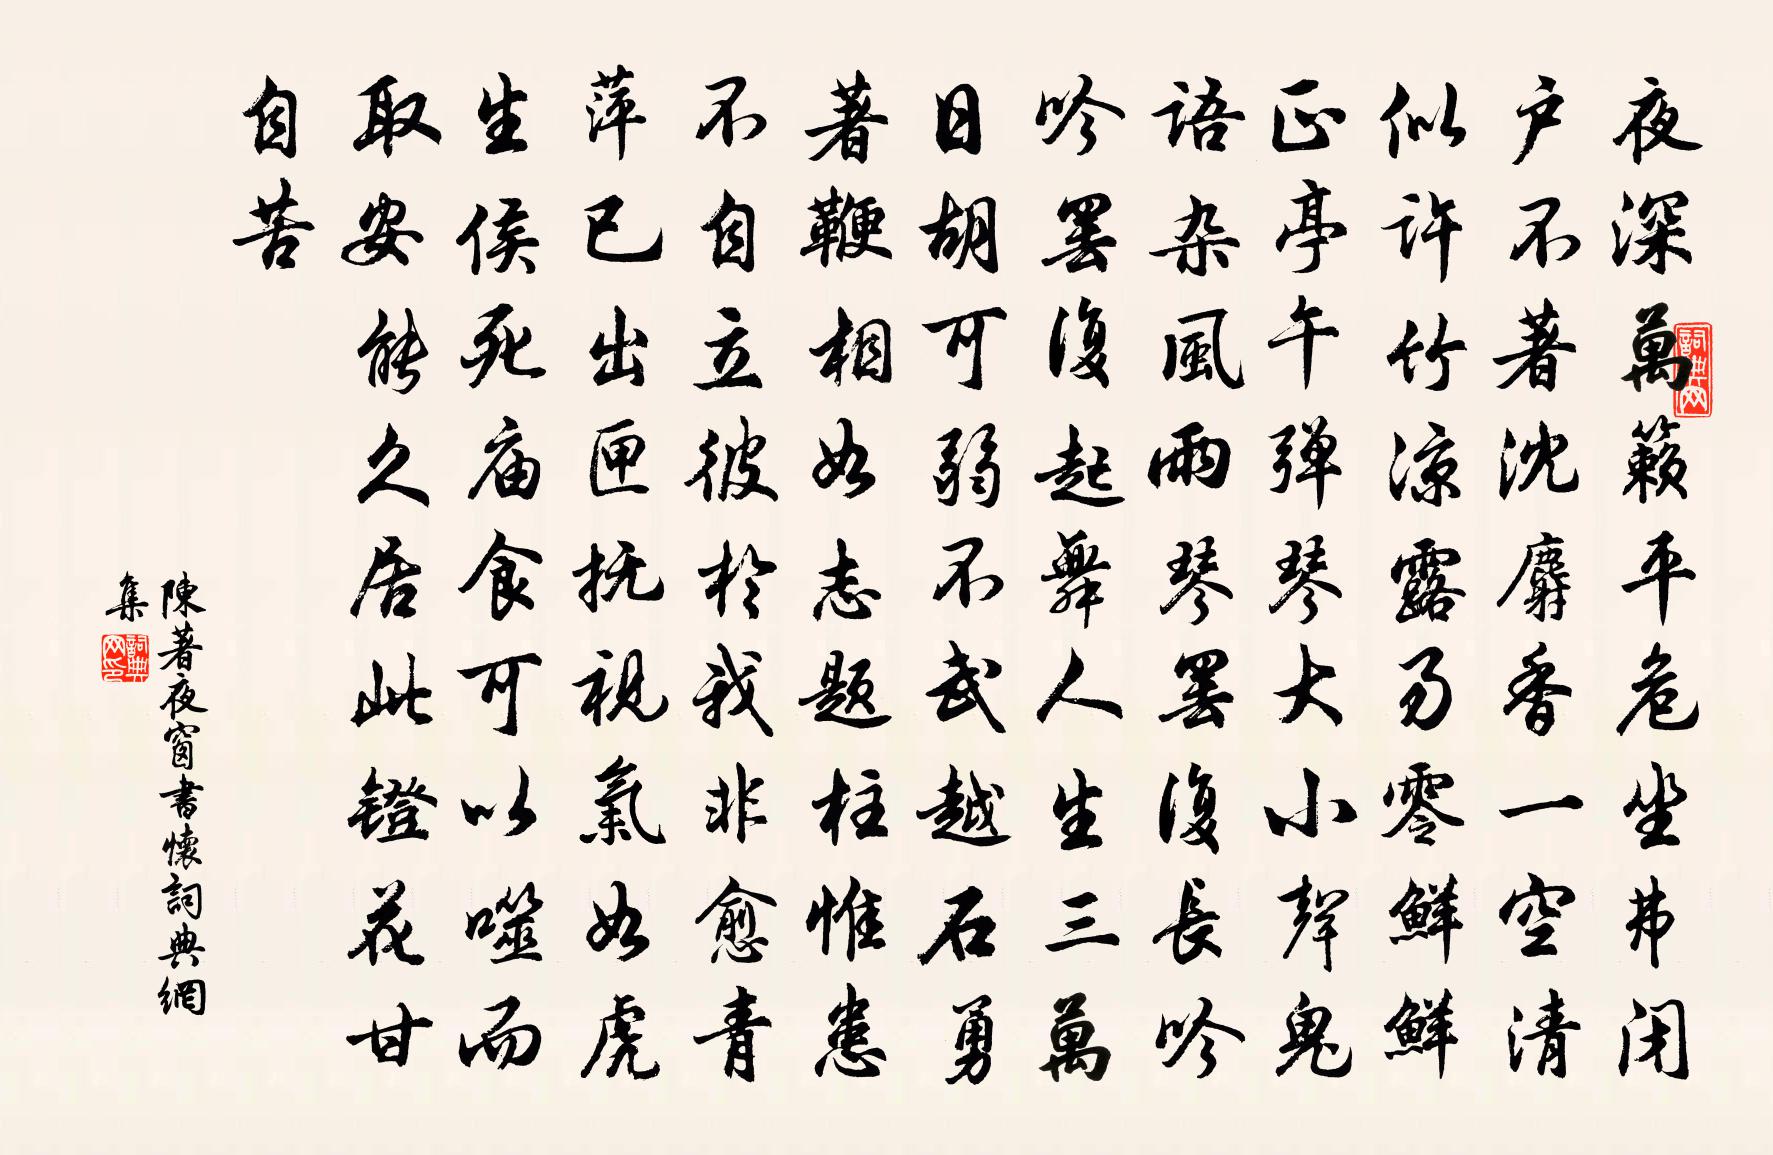 夜深萬籟平危坐弗闭
户不著沈麝香一空清
似许竹凉露勿零鲜鲜
正亭午弹琴大小聲鬼
语杂風雨琴罢復長吟
吟罢復起舞人生三萬
日胡可弱不武越石勇
著鞭相如志题柱惟患
不自立彼於我非愈青
萍已出匣抚視氣如虎
生侯死庙食可以噬而
取安能久居此镫花甘
自苦
陳著夜窗書懷詞典網
集
詞典网
詞典网印